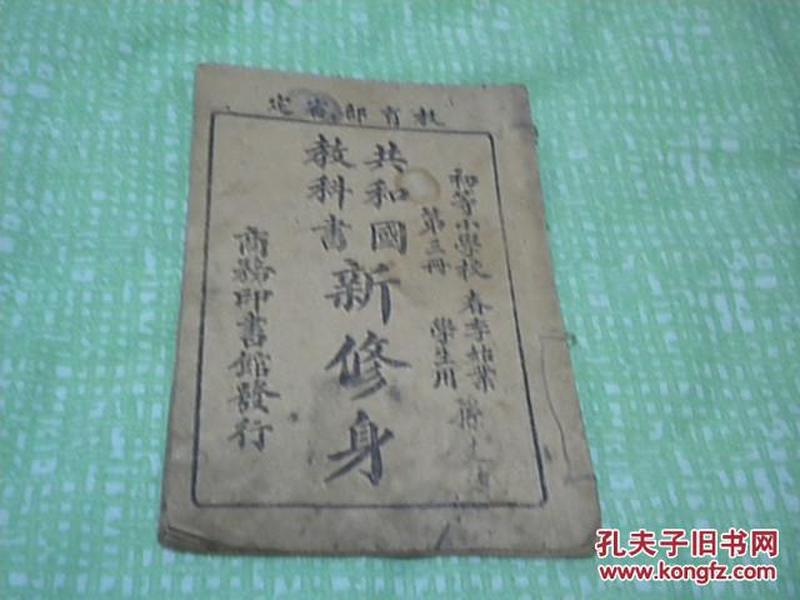 教育部審定
初等小學校 春季始業
第三冊 學生用
共和國
教科書
新修身
商務印書館發行
孔夫子旧书网
www.kongfz.com